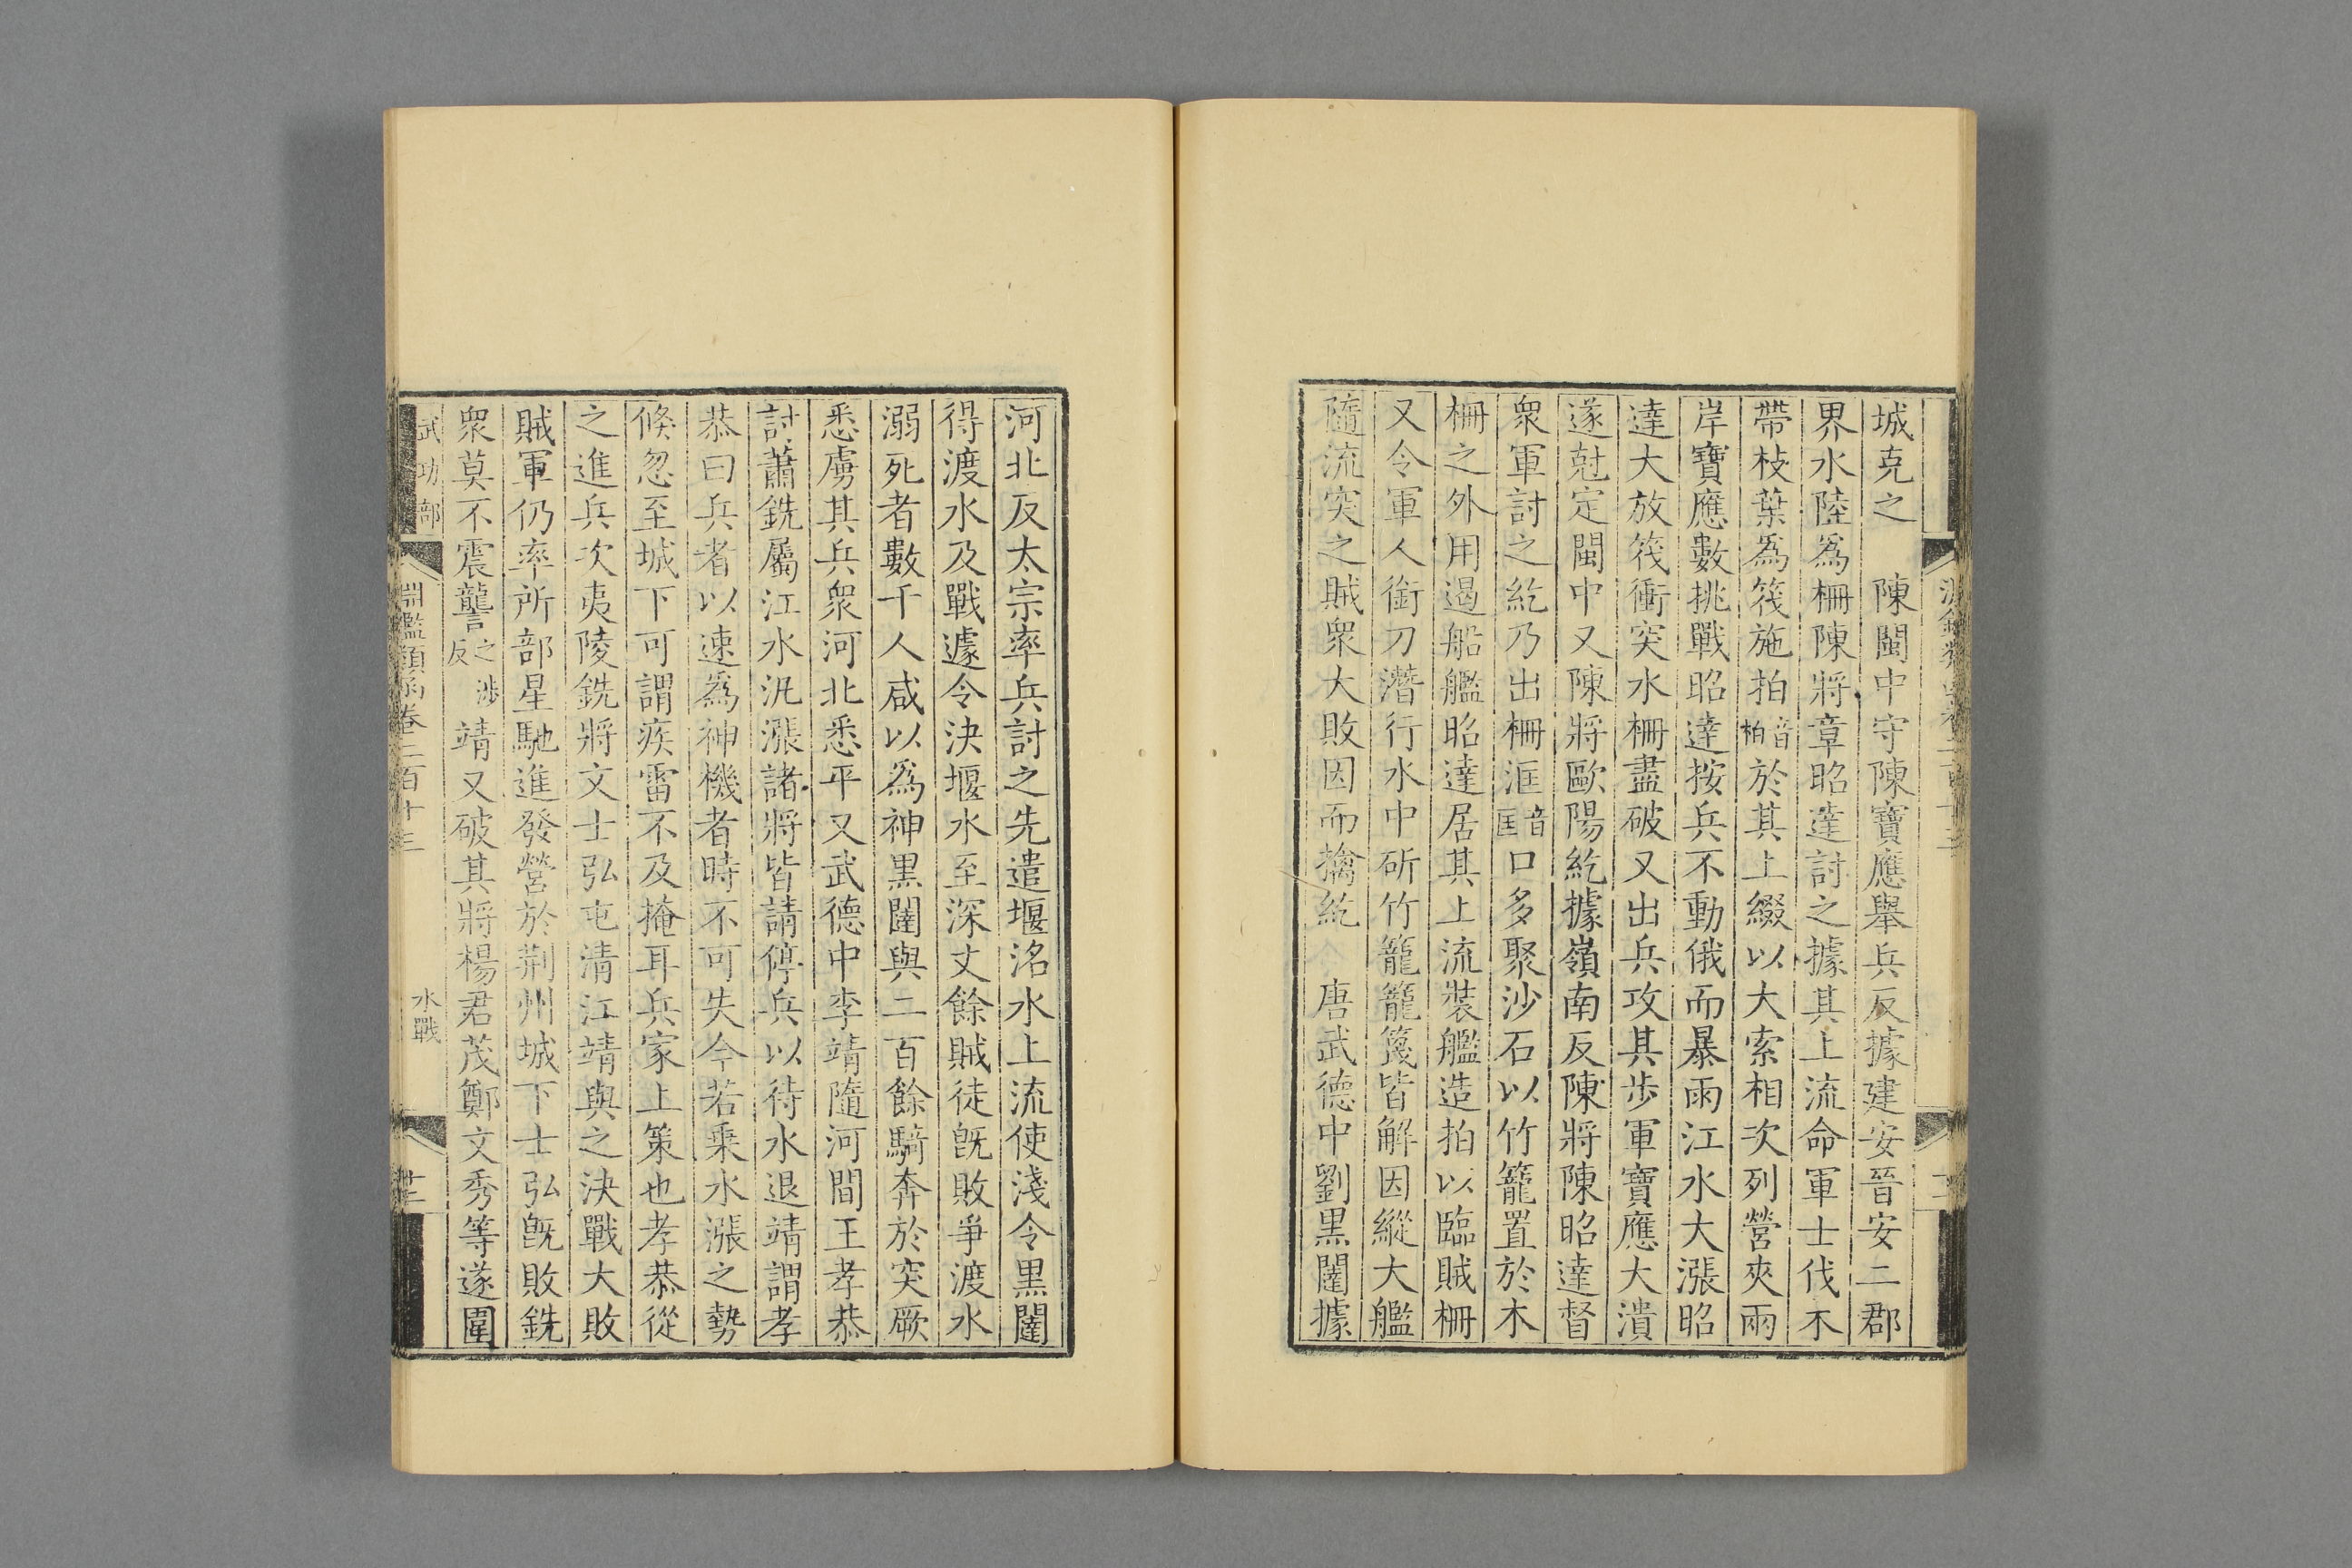 城克之　陳閩中守陳寶應舉兵反據建安晉安二郡
界水陸爲柵陳將章昭達討之據其上流命軍士伐木
帶枝葉爲筏施拍音柏於其上綴以大索相次列營夾兩
岸寶應數挑戰昭達按兵不動俄而暴雨江水大漲昭
達大放筏衝突水柵盡破又出兵攻其步軍寶應大潰
遂尅定閩中又陳將歐陽紇據嶺南反陳將陳昭達督
衆軍討之紇乃出柵洭音匡口多聚沙石以竹籠置於木
柵之外用遏船艦昭達居其上流裝艦造拍以臨賊柵
又令軍人銜刀潛行水中斫竹籠籠篾皆解因縱大艦
隨流突之賊衆大敗因而擒紇　唐武德中劉黒闥據
河北反太宗率兵討之先遣堰洺水上流使淺令黒闥
得渡水及戰遽令決堰水至深丈餘賊徒旣敗爭渡水
溺死者數千人咸以爲神黒闥與二百餘騎奔於突厥
悉虜其兵衆河北悉平又武德中李靖隨河間王孝恭
討蕭銑屬江水汎漲諸將皆請停兵以待水退靖謂孝
恭曰兵者以速爲神機者時不可失今若乘水漲之勢
倏忽至城下可謂疾雷不及掩耳兵家上策也孝恭從
之進兵次夷陵銑將文士弘屯清江靖與之決戰大敗
賊軍仍率所部星馳進發營於荆州城下士弘旣敗銑
衆莫不震讋之涉反靖又破其將楊君茂鄭文秀等遂圍
武功部
淵鑑類函卷二百十三
水戰